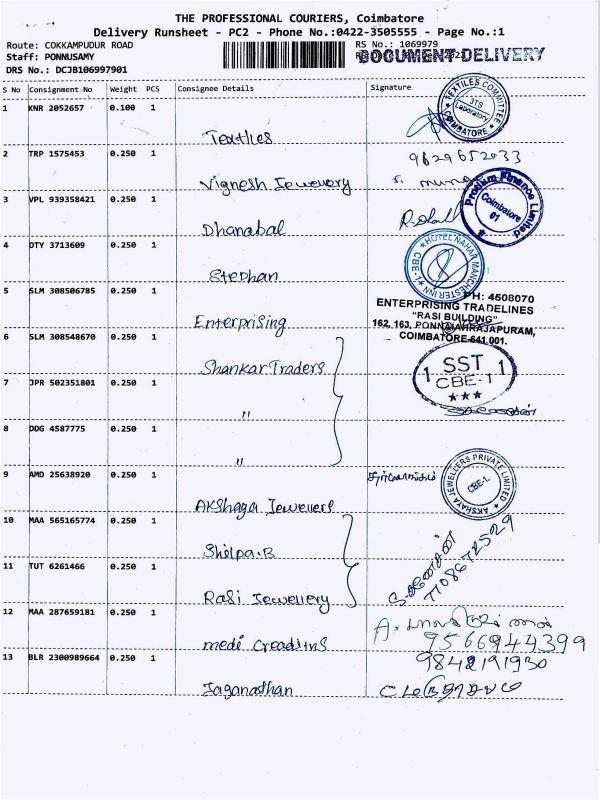 THE PROFESSIONAL COURIERS, Coimbatore
Delivery Runsheet - PC2 - Phone No.:0422-3505555 - Page No.:1
Route: COKKAMPUDUR ROAD
RS No.: 1069979
Staff: PONNUSAMY
DOCUMENT DELIVERY
DRS No.: DCJB106997901
S No Consignment No Weight PCS Consignee Details Signature
1 KNR 2052657 0.100 1
Textiles
TEXTILES COMMITTEE
3TS
Laboratory
COIMBATORE
2 TRP 1575453 0.250 1
9629652033
Vignesh Jewellery
3 VPL 939358421 0.250 1
Dhanabal
Finance Limited
Coimbatore
01
4 DTY 3713609 0.250 1
Stephan
HOTEL NAHAR MANCHESTER INN
CBE-1
5 SLM 308506785 0.250 1
Enterprising
PH: 4508070
ENTERPRISING TRADELINES
"RASI BUILDING"
162, 163, PONNAIAHRAJAPURAM,
COIMBATORE-641 001.
6 SLM 308548670 0.250 1
Shankar Traders
1 SST 1
CBE-1
7 JPR 502351801 0.250 1
"
8 DDG 4587775 0.250 1
"
9 AMD 25638920 0.250 1
Akshaya Jewellers
AKSHAYA JEWELLERS PRIVATE LIMITED
CBE-1.
10 MAA 565165774 0.250 1
Shilpa.B
7108672529
11 TUT 6261466 0.250 1
Rasi Jewellery
12 MAA 287659181 0.250 1
medi Creadlins
9566944399
13 BLR 2300989664 0.250 1
9842191930
Jaganathan